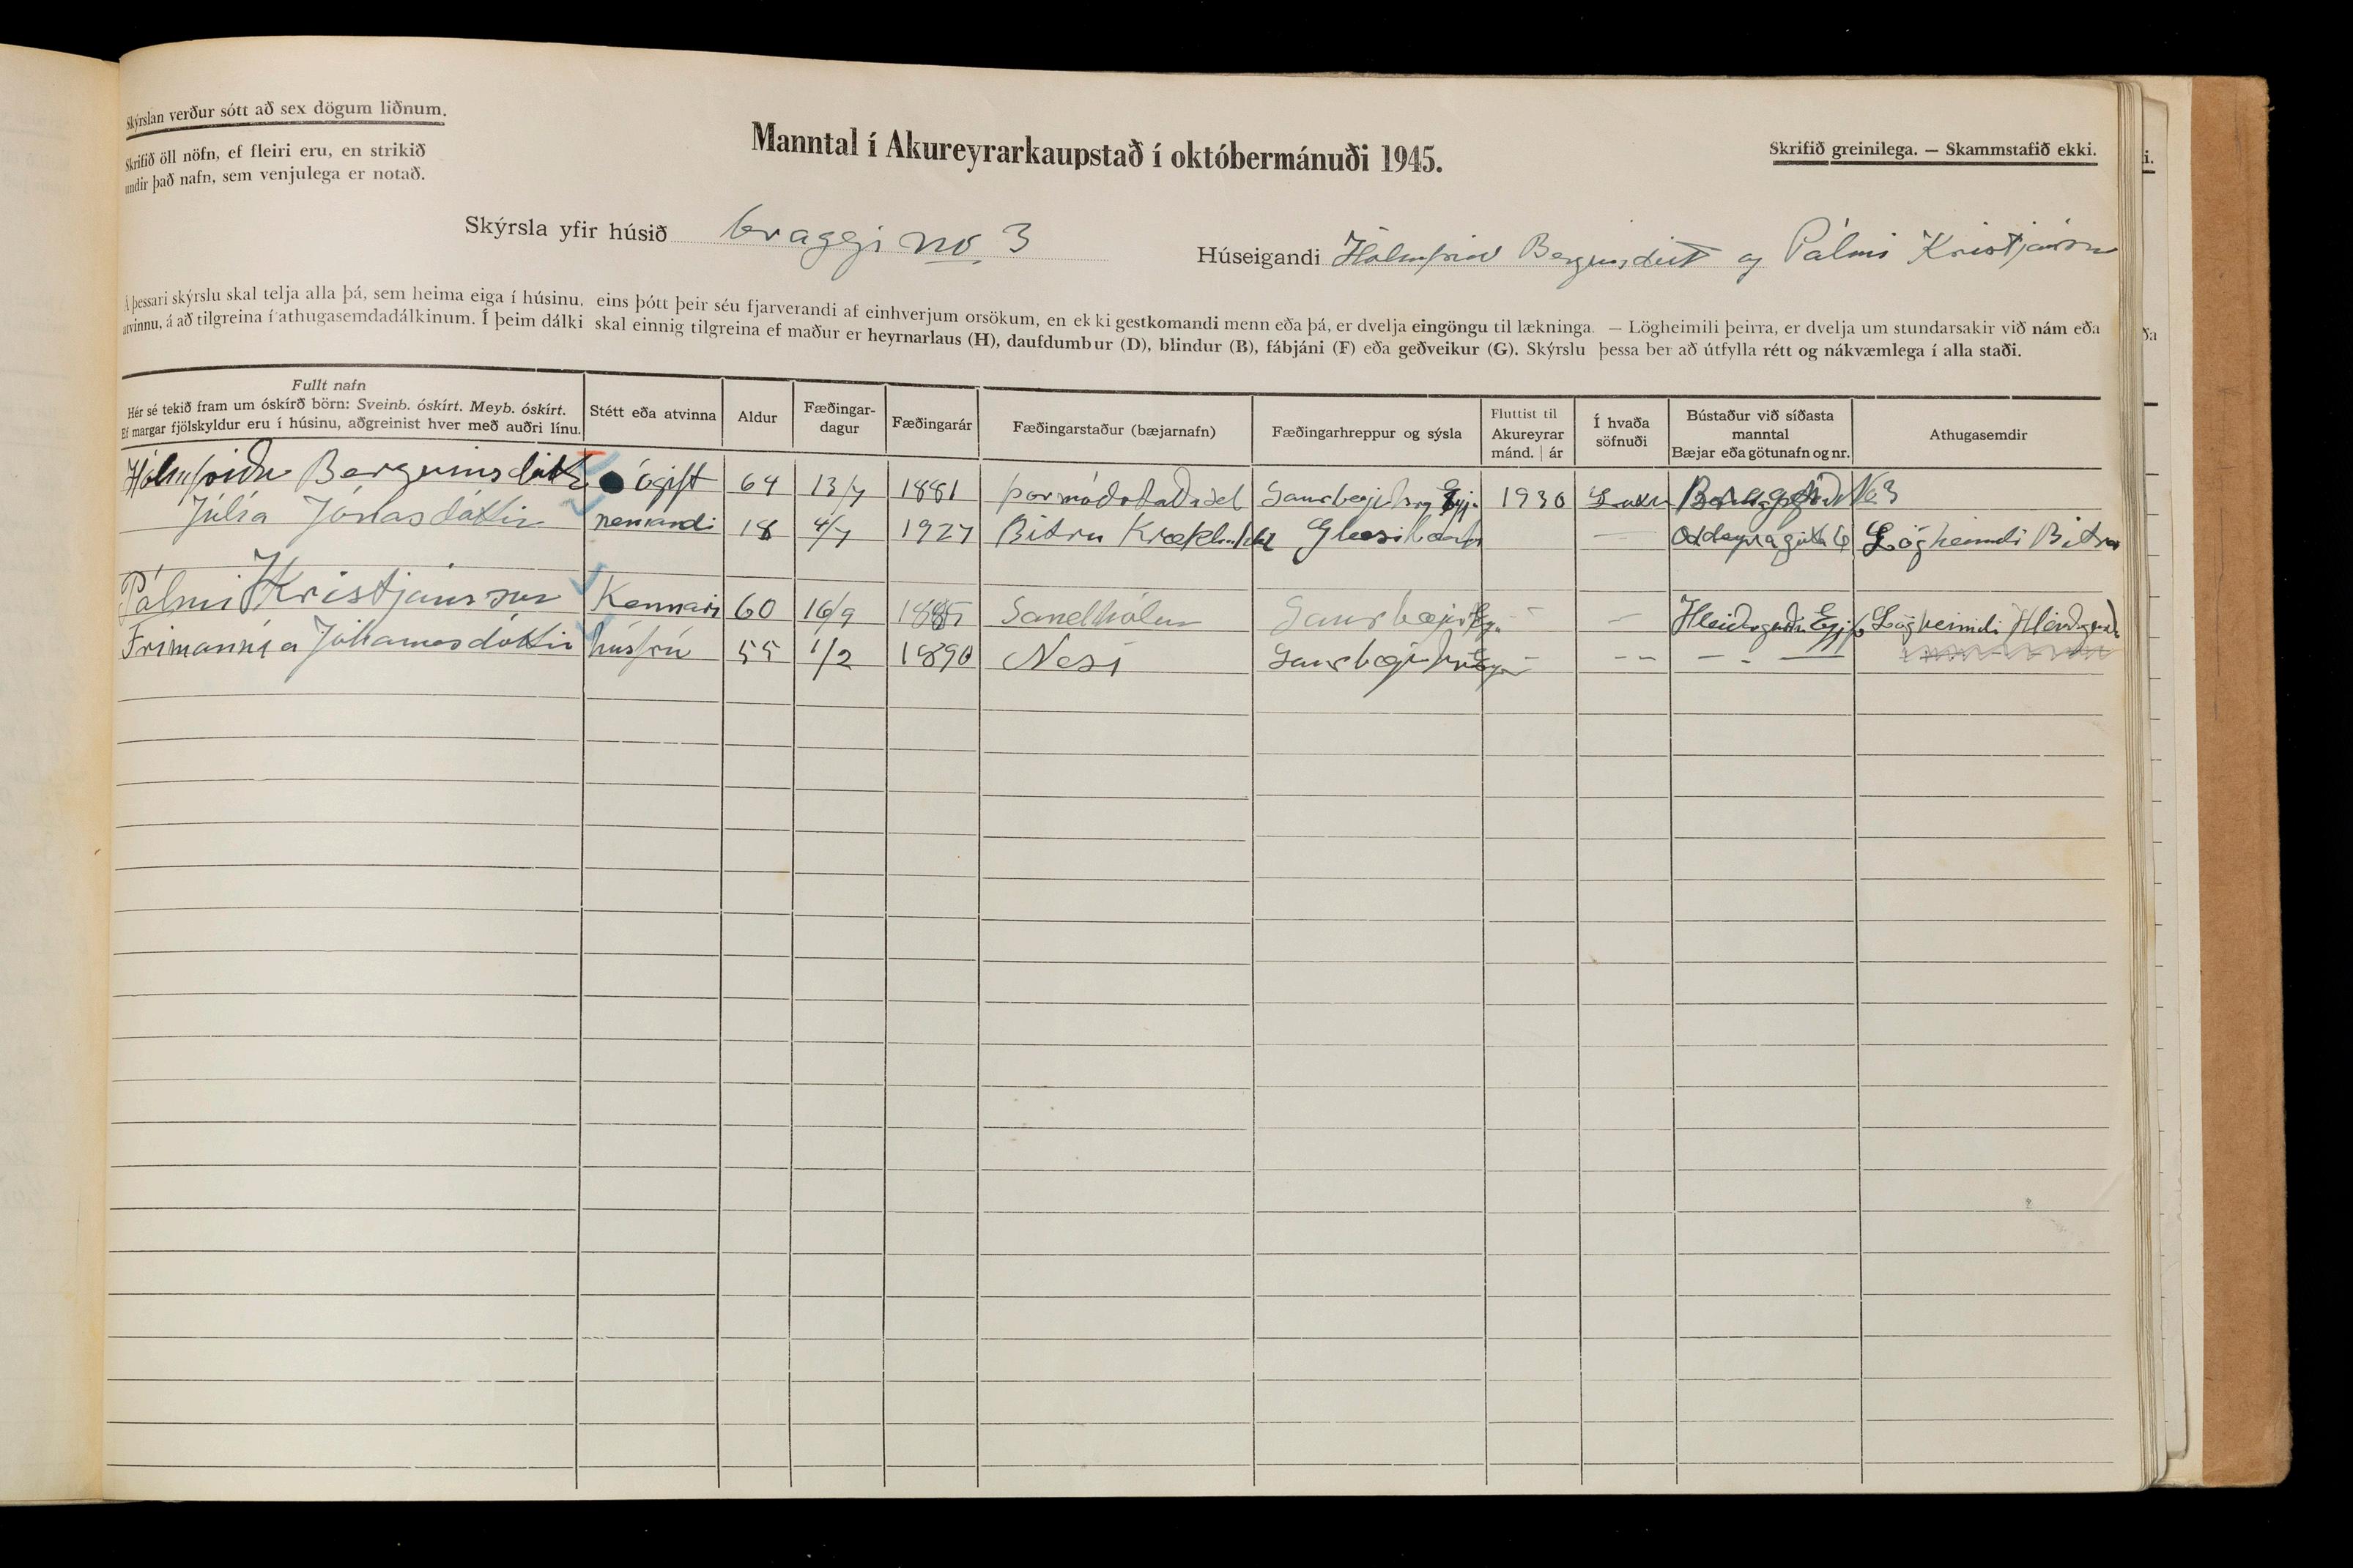 Skýrslan verður sótt að sex dögum liðnum.
Skrifið öll nöfn, ef fleiri eru, en strikið
undir það nafn, sem venjulega er notað.
Manntal í Akureyrarkaupstað í októbermánuði 1945.
Skrifið greinilega. — Skammstafið ekki.
Skýrsla yfir húsið braggi no 3
Húseigandi Hólmfríð Bergvinsdótt og Pálmi Kristjánsson
Á þessari skýrslu skal telja alla þá, sem heima eiga í húsinu, eins þótt þeir séu fjarverandi af einhverjum orsökum, en ekki gestkomandi menn eða þá, er dvelja eingöngu til lækninga. — Lögheimili þeirra, er dvelja um stundarsakir við nám eða
atvinnu, á að tilgreina í athugasemdadálkinum. Í þeim dálki skal einnig tilgreina ef maður er heyrnarlaus (H), daufdumbur (D), blindur (B), fábjáni (F) eða geðveikur (G). Skýrslu þessa ber að útfylla rétt og nákvæmlega í alla staði.
Fullt nafn
Hér sé tekið fram um óskírð börn: Sveinb. óskírt. Meyb. óskírt.
Ef margar fjölskyldur eru í húsinu, aðgreinist hver með auðri línu.
Stétt eða atvinna
Aldur
Fæðingar-
dagur
Fæðingarár
Fæðingarstaður (bæjarnafn)
Fæðingarhreppur og sýsla
Fluttist til
Akureyrar
mánd. | ár
Í hvaða
söfnuði
Bústaður við síðasta
manntal
Bæjar eða götunafn og nr.
Athugasemdir
Hólmfríður Bergvinsdótt ógift 64 13/7 1881 Þormóðstaðasel 1930 No 3
Júlía Jónasdóttir nemandi 18 4/7 1927 Bitru Oddeyragata 6 Lögheimili Bitra
Pálmi Kristjánsson Kennari 60 16/9 1885 Sandhólum
Frímannía Jóhannesdóttir húsfrú 55 1/2 1890 Nesi